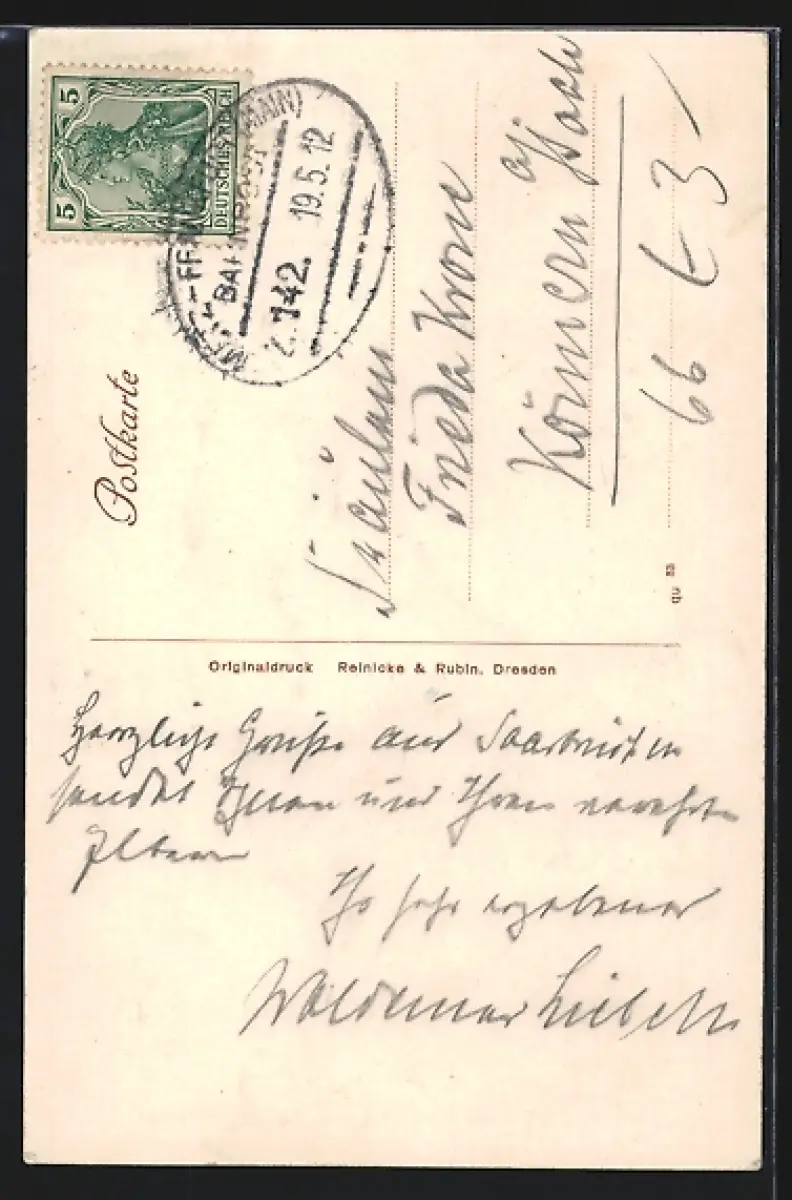 Postkarte
5 5
DEUTSCHES REICH
(MAIN)
BAHNPOST
Z. 142. 19.5.12
Fräulein
Frieda Krone
Körnern
66 t 3
qu 23
Originaldruck Reinicke & Rubin, Dresden
Herzliche Grüße aus Saarbrücken
sendet Ihnen und Ihren verehrten
Eltern
Ihr sehr ergebener
Waldemar